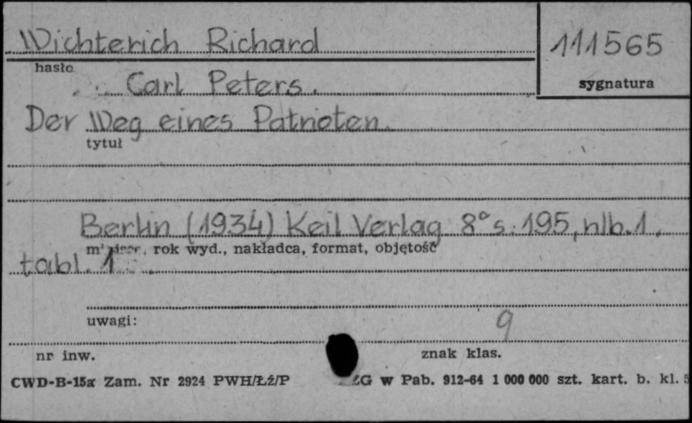 Wichterich Richard
111565
hasło
sygnatura
Carl Peters.
Der Weg eines Patrioten.
tytuł
Berlin (1934) Keil Verlag 8° s. 195, nlb. 1,
rok wyd., nakładca, format, objętość
tabl. 1
uwagi:
9
nr inw.
znak klas.
CWD-B-15a Zam. Nr 2924 PWH/Łź/P
w Pab. 912-64 1 000 000 szt. kart. b. kl.